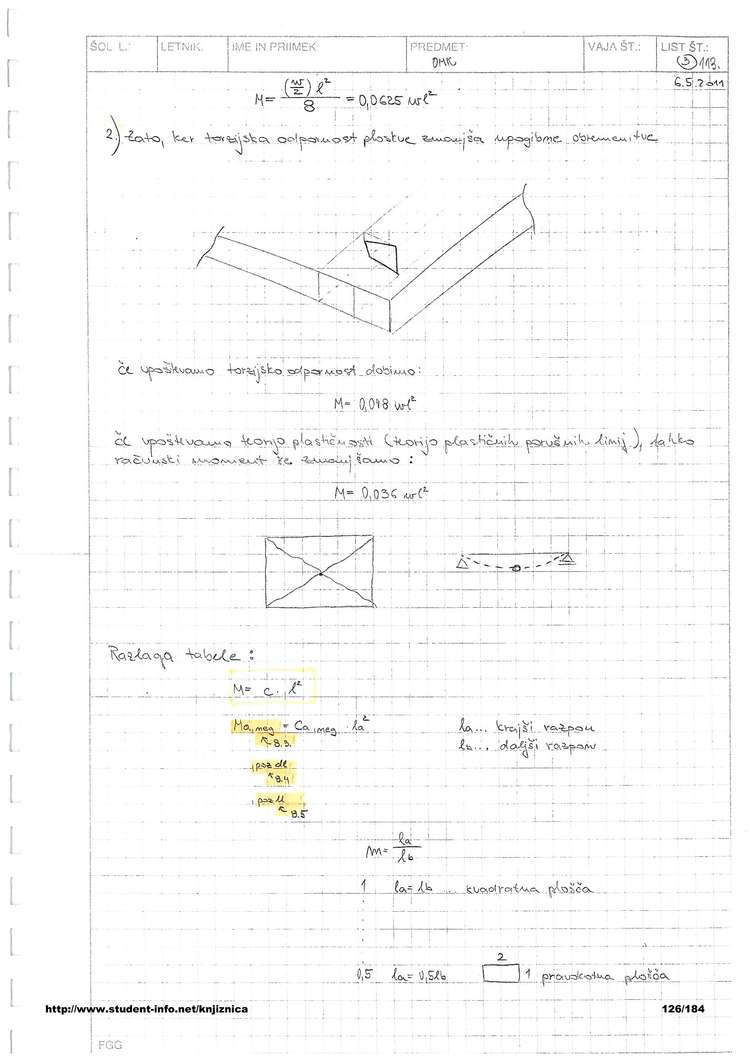 ŠOL. L.: LETNIK: IME IN PRIIMEK: PREDMET: VAJA ŠT.: LIST ŠT.:
OMK 3 113.
6.5.2011
M = (w/2) l² / 8 = 0,0625 wl²
2.) Zato, ker torzijska odpornost plošče zmanjša upogibne obremenitve
če upoštevamo torzijsko odpornost dobimo:
M = 0,048 wl²
če upoštevamo teorijo plastičnosti (teorijo plastičnih porušnih linij), lahko
računski moment še zmanjšamo :
M = 0,036 wl²
Razlaga tabele :
M = c · l²
Ma,neg = Ca,neg · la² la... krajši razpon
8.3. lb... daljši razpon
,poz dl
8.4
,poz ll
8.5
m = la / lb
1 la = lb ... kvadratna plošča
2
0,5 la = 0,5lb 1 pravokotna plošča
http://www.student-info.net/knjiznica 126/184
FGG